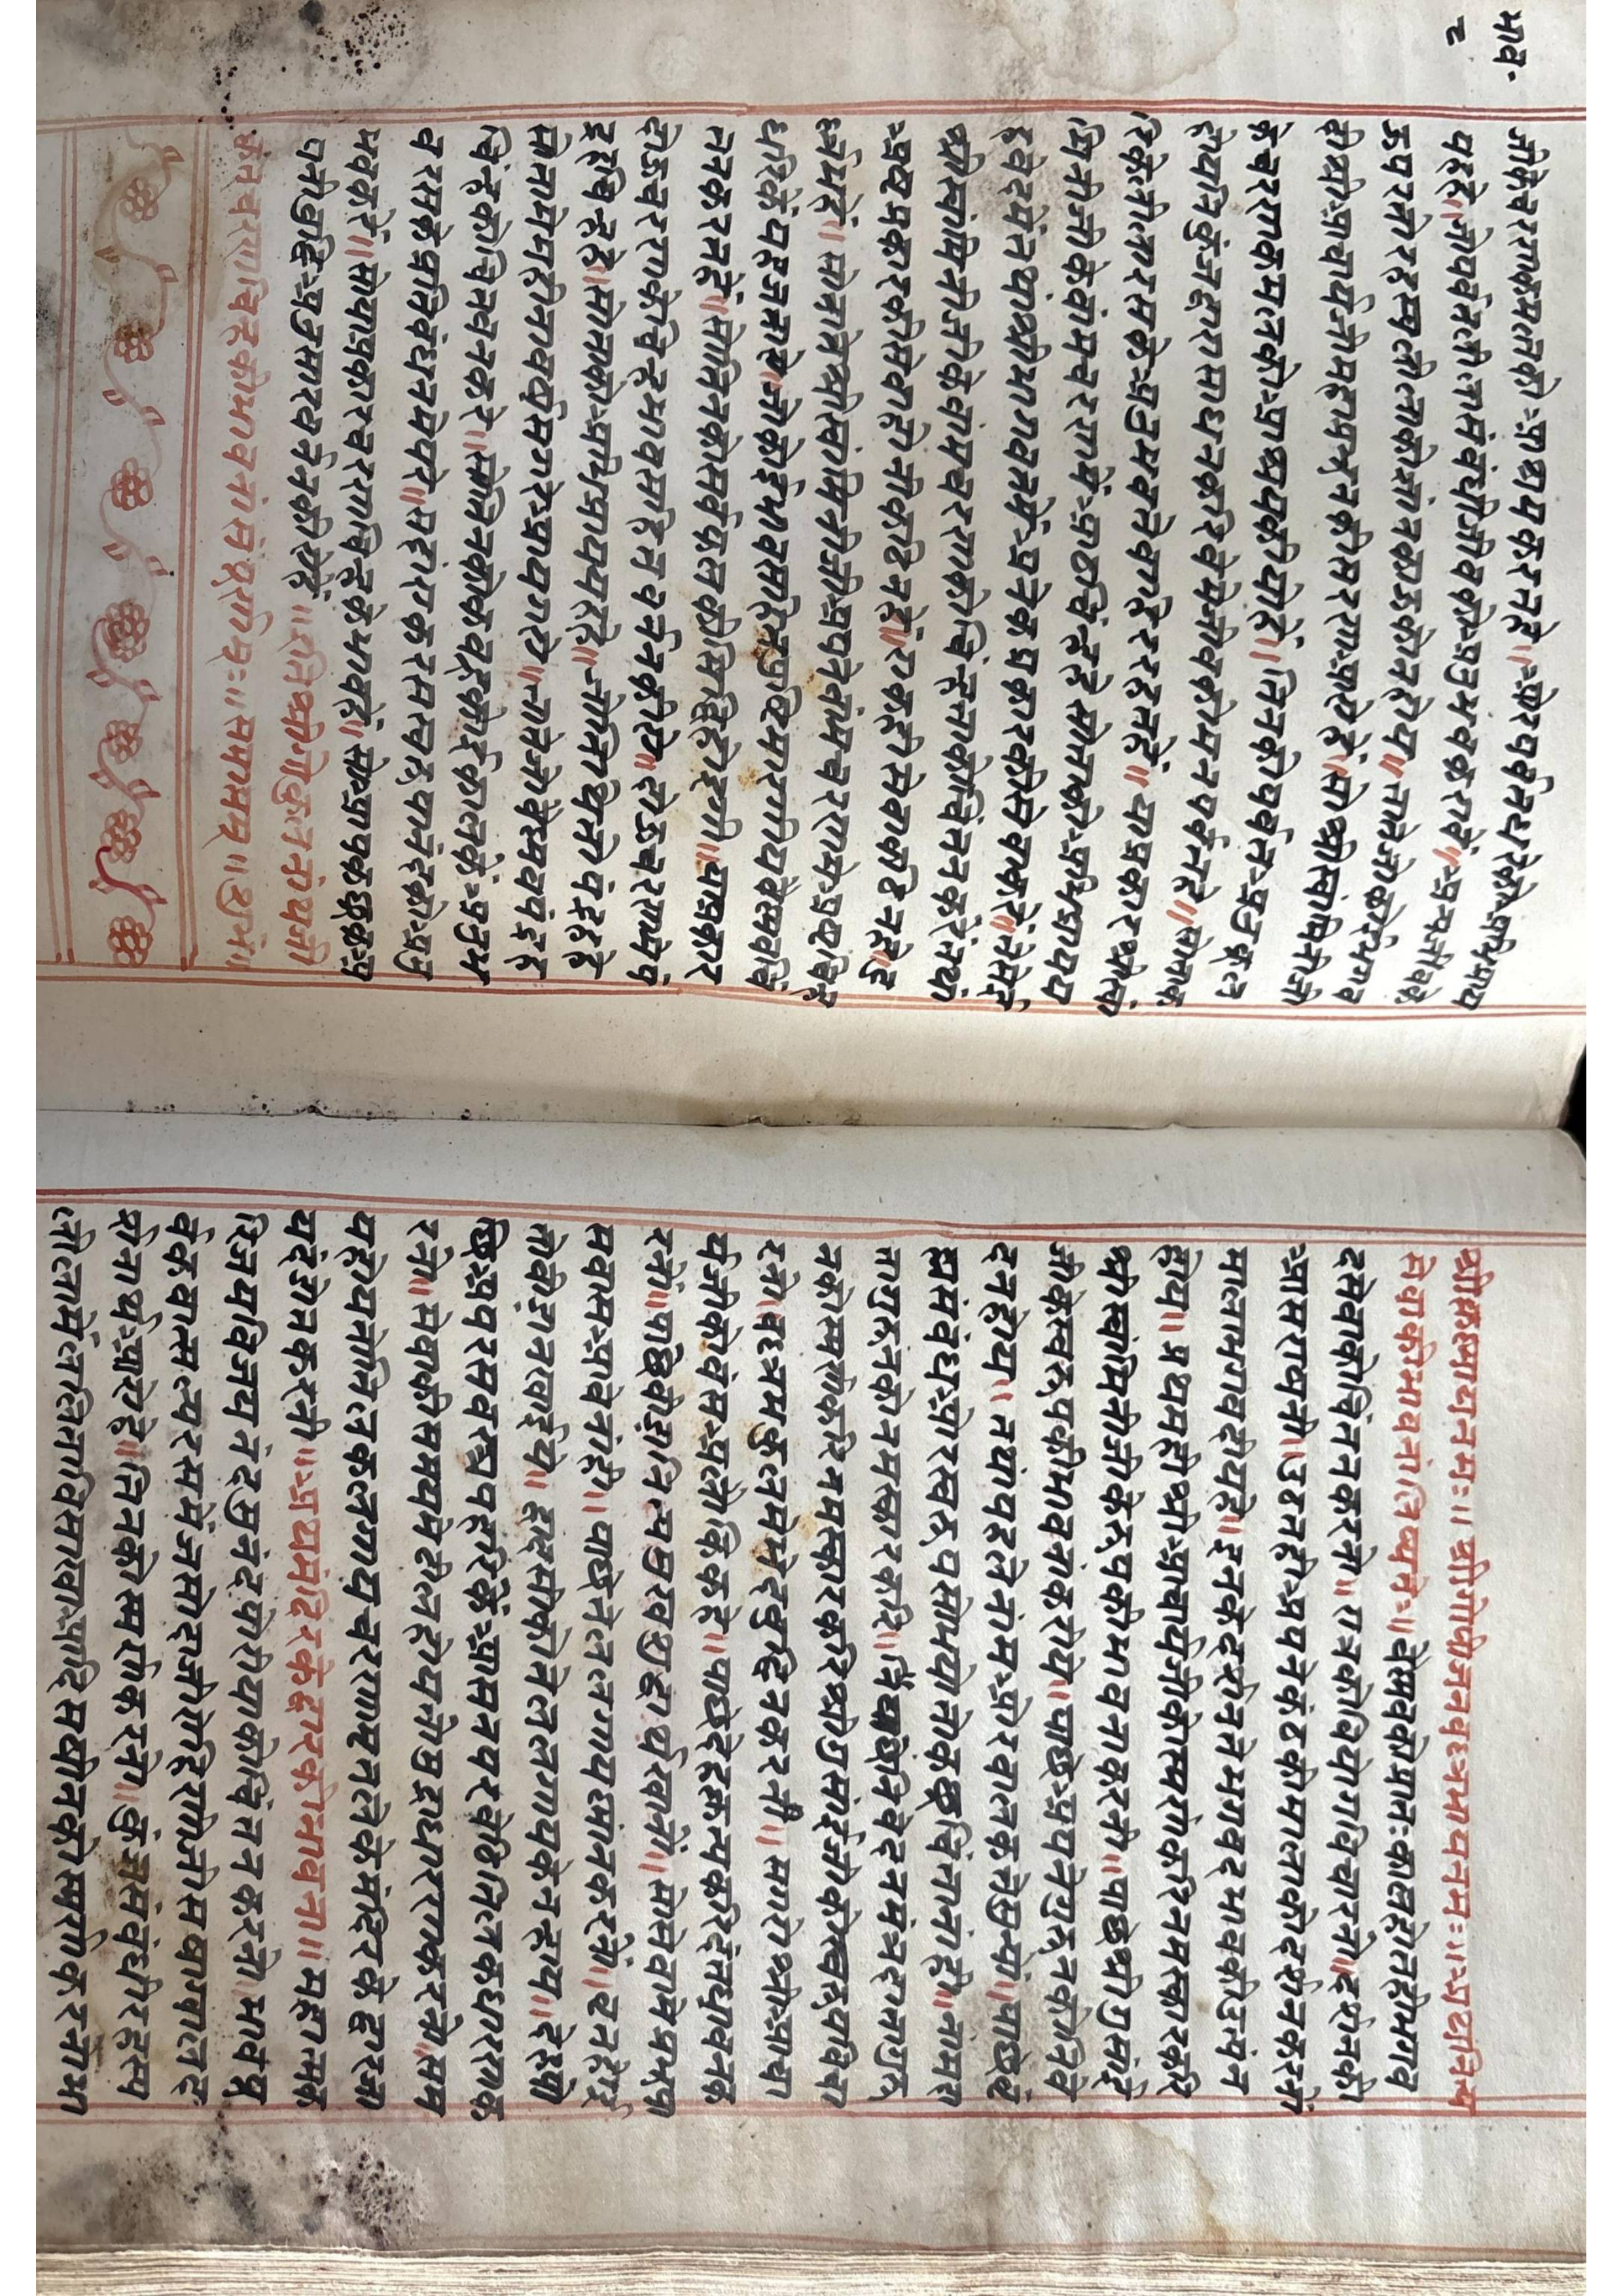 भाव॰
८
जीकेचरणकमलको आश्रयकरतहे॥ ओरपर्वतहे सो अभिप्राय
यहहे॥ जोपर्वतलीलासंबंधीजीवको अनुभवकरावे॥ अन्यजीवके
ऊपरजोरहस्यलीलाकोग्यांनकोउकोनहोय॥ तातेजोकोईभगव
दीयश्रीआचार्यजीमहाप्रभूनकीसरण आएहें॥ सोश्रीस्वामिनीजी
केचरणकमलको आश्रयकीयोहें॥ तिनकोपर्वत अनुकूल
होयनिकुंजद्वारासाधनकरिवेमेजीवकोमनपर्वतहे॥ सोताक
रिकेलीलारसको अनुभवनेवारहरतहें॥ याप्रकारश्रीस्वा
मिनीजीकेवांमचरणमें आठचिंन्हहे सोतिनको अभिप्राय
हृदयमेंतथाश्रीभागवतमें अनेकप्रकारकीसेवाकरें॥ तेसेई
श्रीस्वांमिनीजीकेवांमचरणकोचिंन्हताकोचिंतनकरेतथा
अष्टप्रकारकीसेवाहीतीकठिनहे॥ राकहीसेवाकठिनहे॥
तातेश्रीस्वांमिनीजी अपनेवांमचरणमे अष्टचिन्ह
धरिकेंयहजताये॥ जोकोईभावसहितपुष्टिमारगीयवैस्मवचिं
तनकरतहें॥ सोतिनकोसर्वफलकीसिद्धिहोइगी॥ याप्रकार
दोऊचरणकेचिन्हभावसहितवर्ननकीये॥ दोऊचरणमेंपं
द्रहचिन्हहे॥ सोताको अभिप्राययहहे॥ जोतिथिनोपंद्रहहे
चिंन्हकोचिंतवनकरे॥ सोतिनकोकबहूकोईकालको अनुभ
वरसकेप्रतिबंधनमेंपरे॥ सदांराकरसस्वरूपानंदको अनु
भवकरें॥ सोयाप्रकारचरणचिन्हकेभावहें॥ सो आपकछुक अ
पनीबुद्धि अनुसारवर्ननकीयेहें॥ इतिश्रीगोकुलनाथजी
कृतचरणचिन्हकीभावनासंपूर्णम्ः॥ समाप्तम्॥ शुभं॥
श्रीकृष्णायनमः॥ श्रीगोपीजनवल्लभायनमः॥ अथनित्य
सेवाकीभावनालिख्यते॥ वेस्मवकोप्रातःकालहीतेंभगव
दसेवाकोचिंतनकरनो॥ रात्रकोवियोगविचारनो॥ दर्शनकी
आसराषनो॥ उठतही अपनेकंठकीमालाकोदर्शनकरनों
मालाभगवदीयहे॥ इनकेदर्शनतेभगवदभावकीउत्पन
होय॥ प्रथमहीश्री आचार्यजीकोस्मरणकरिनमस्कारकरि
श्रीस्वामिनीजीकेरूपकीभावनाकरनी॥ पाछेश्रीगुसांई
जीकेस्वरूपकीभावनाकरीये॥ पाछे अपनेगुरूनकोनिवे
दनहोय॥ तथापहलेनांम ओरबालकतेसुन्यो॥ पाछेब्र
ह्मसंबंध ओरस्वरूपसोंभयोतोकछुचिंतानांही॥ नामस
तागुरूनकोनमस्कारकरि॥ पाछेनिवेदनमंत्रदातागुरू
नकोस्मर्णकरिनमस्कारकरिश्रीगुसांईजीकोस्वरूपविचा
रनो॥ वल्लभकुलमेभेदबुद्धिनकरनी॥ सगरे श्री आचा
र्यजीकोवंस अलौकिकहे॥ पाछेदेहकृत्यकरिदंतधावनक
रनों॥ पाछेवीडीनित्यमुखशुद्धार्थखानो॥ सोसेवामेप्रभुप
सवास आवेनांही॥ पाछेतेललगायस्नानकरनो॥ इतनेई
तोवीडानखाईये॥ द्वादसीकोतेललगायकेनन्हाय॥ देहसो
छि अपरसवस्त्रपहरिकें आसनपरबेठितिलकधारणक
रनो॥ सेवाकीसमयमेढीलनहोयतोमुद्राधारणकरनी॥ सम
यहोयतोतिलकलगायचरणामृतलेकेमंदिरकेद्वारजा
यदंडोतकरनी॥ अथमंदिरकेद्वारकीभावना॥ महात्मक
रिजयविजयनंदसुनंदकोरीयाकोचिंतनकरनो॥ भावप्रू
र्वकवात्सल्यरसमेंजसोदाजीरोहिणीजीसखागपालदे
सीनार्थ आयेहे॥ तिनकोस्मर्णकरनो॥ कुंजसंबंधीरहस्य
लीलामेंललिताविसाखा आदिसखीनकोस्मर्णकरनोभा